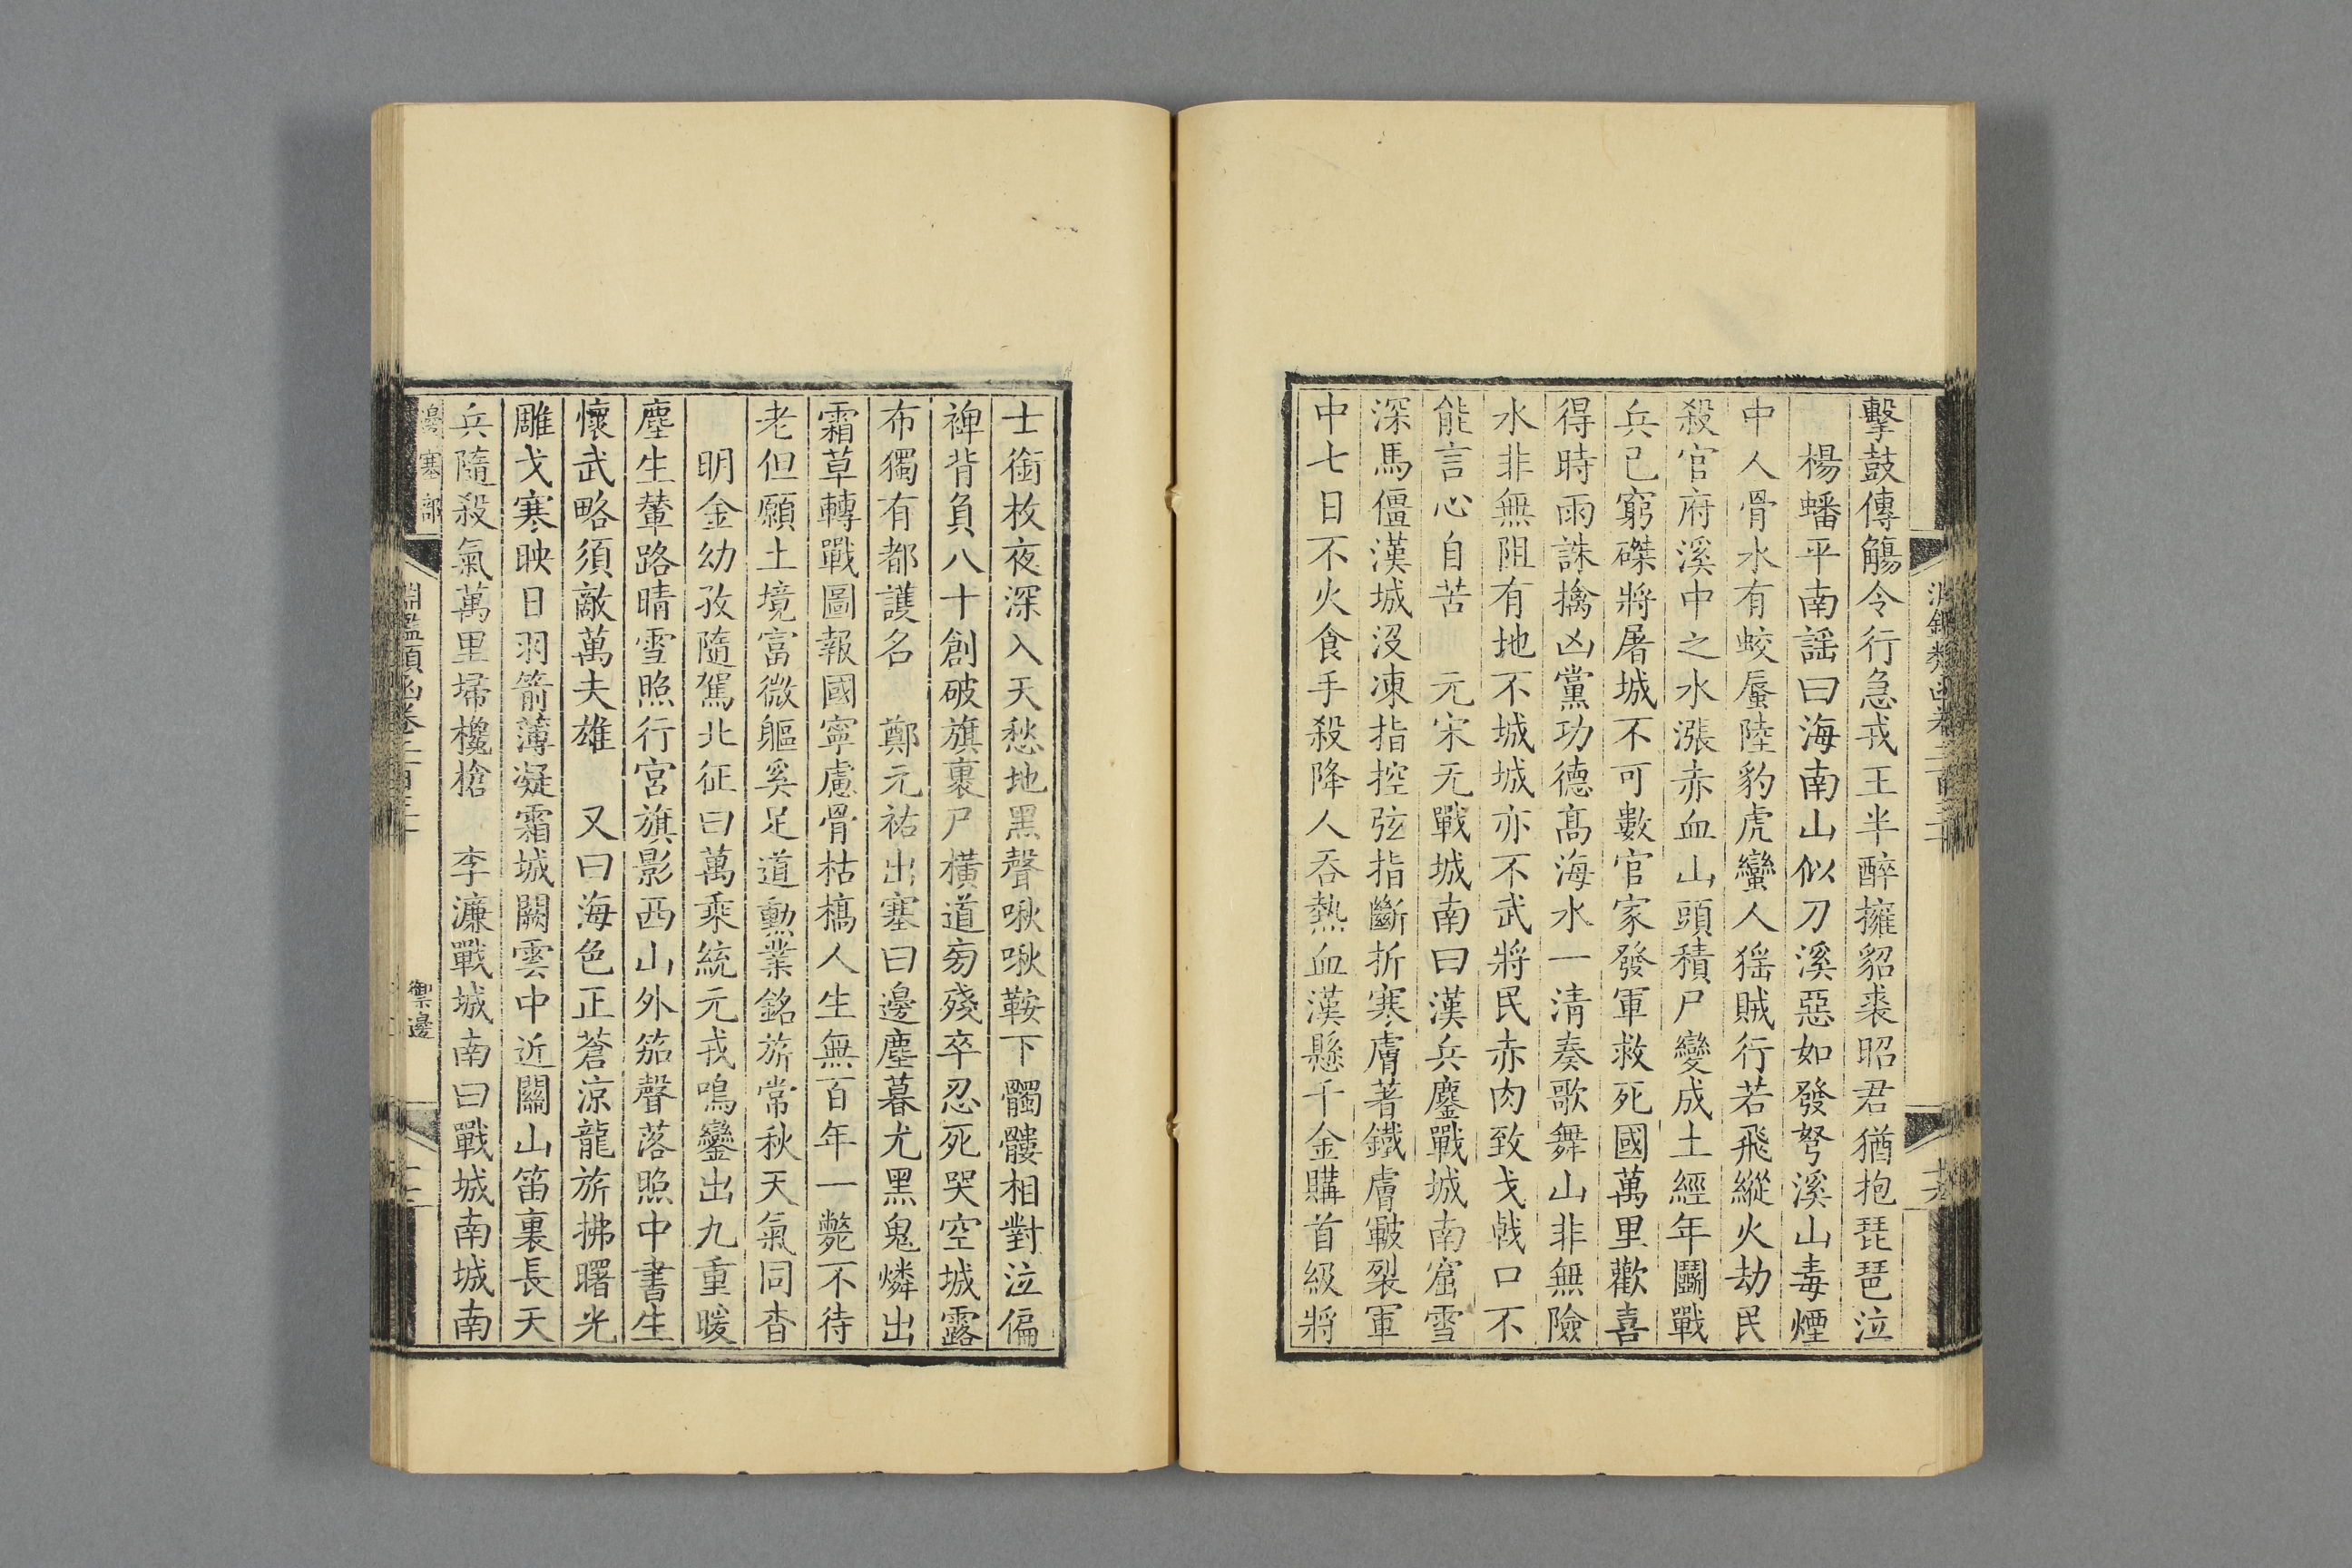 擊鼓傳觴令行急戎王半醉擁貂裘昭君猶抱琵琶泣
楊蟠平南謡曰海南山似刀溪惡如發弩溪山毒煙
中人骨水有蛟蜃陸豹虎蠻人猺賊行若飛縱火劫民
殺官府溪中之水漲赤血山頭積尸變成土經年鬬戰
兵已窮磔將屠城不可數官家發軍救死國萬里歡喜
得時雨誅擒凶黨功德髙海水一清奏歌舞山非無險
水非無阻有地不城城亦不武將民赤肉致戈戟口不
能言心自苦　元宋无戰城南曰漢兵鏖戰城南窟雪
深馬僵漢城没凍指控弦指斷折寒膚著鐵膚皸裂軍
中七日不火食手殺降人呑熱血漢懸千金購首級將
士銜枚夜深入天愁地黑聲啾啾鞍下髑髏相對泣偏
裨背負八十創破旗裹尸橫道旁殘卒忍死哭空城露
布獨有都護名　鄭元祐出塞曰邊塵暮尤黑鬼燐出
霜草轉戰圖報國寧慮骨枯槁人生無百年一斃不待
老但願土境富微軀奚足道勲業銘旂常秋天氣同杳
明金幼孜隨駕北征曰萬乘統元戎鳴鑾出九重暖
塵生輦路晴雪照行宮旗影西山外笳聲落照中書生
懷武略須敵萬夫雄　又曰海色正蒼涼龍旂拂曙光
雕戈寒映日羽箭薄凝霜城闕雲中近關山笛裏長天
兵隨殺氣萬里埽欃槍　李濂戰城南曰戰城南城南
邊塞部
禦邊